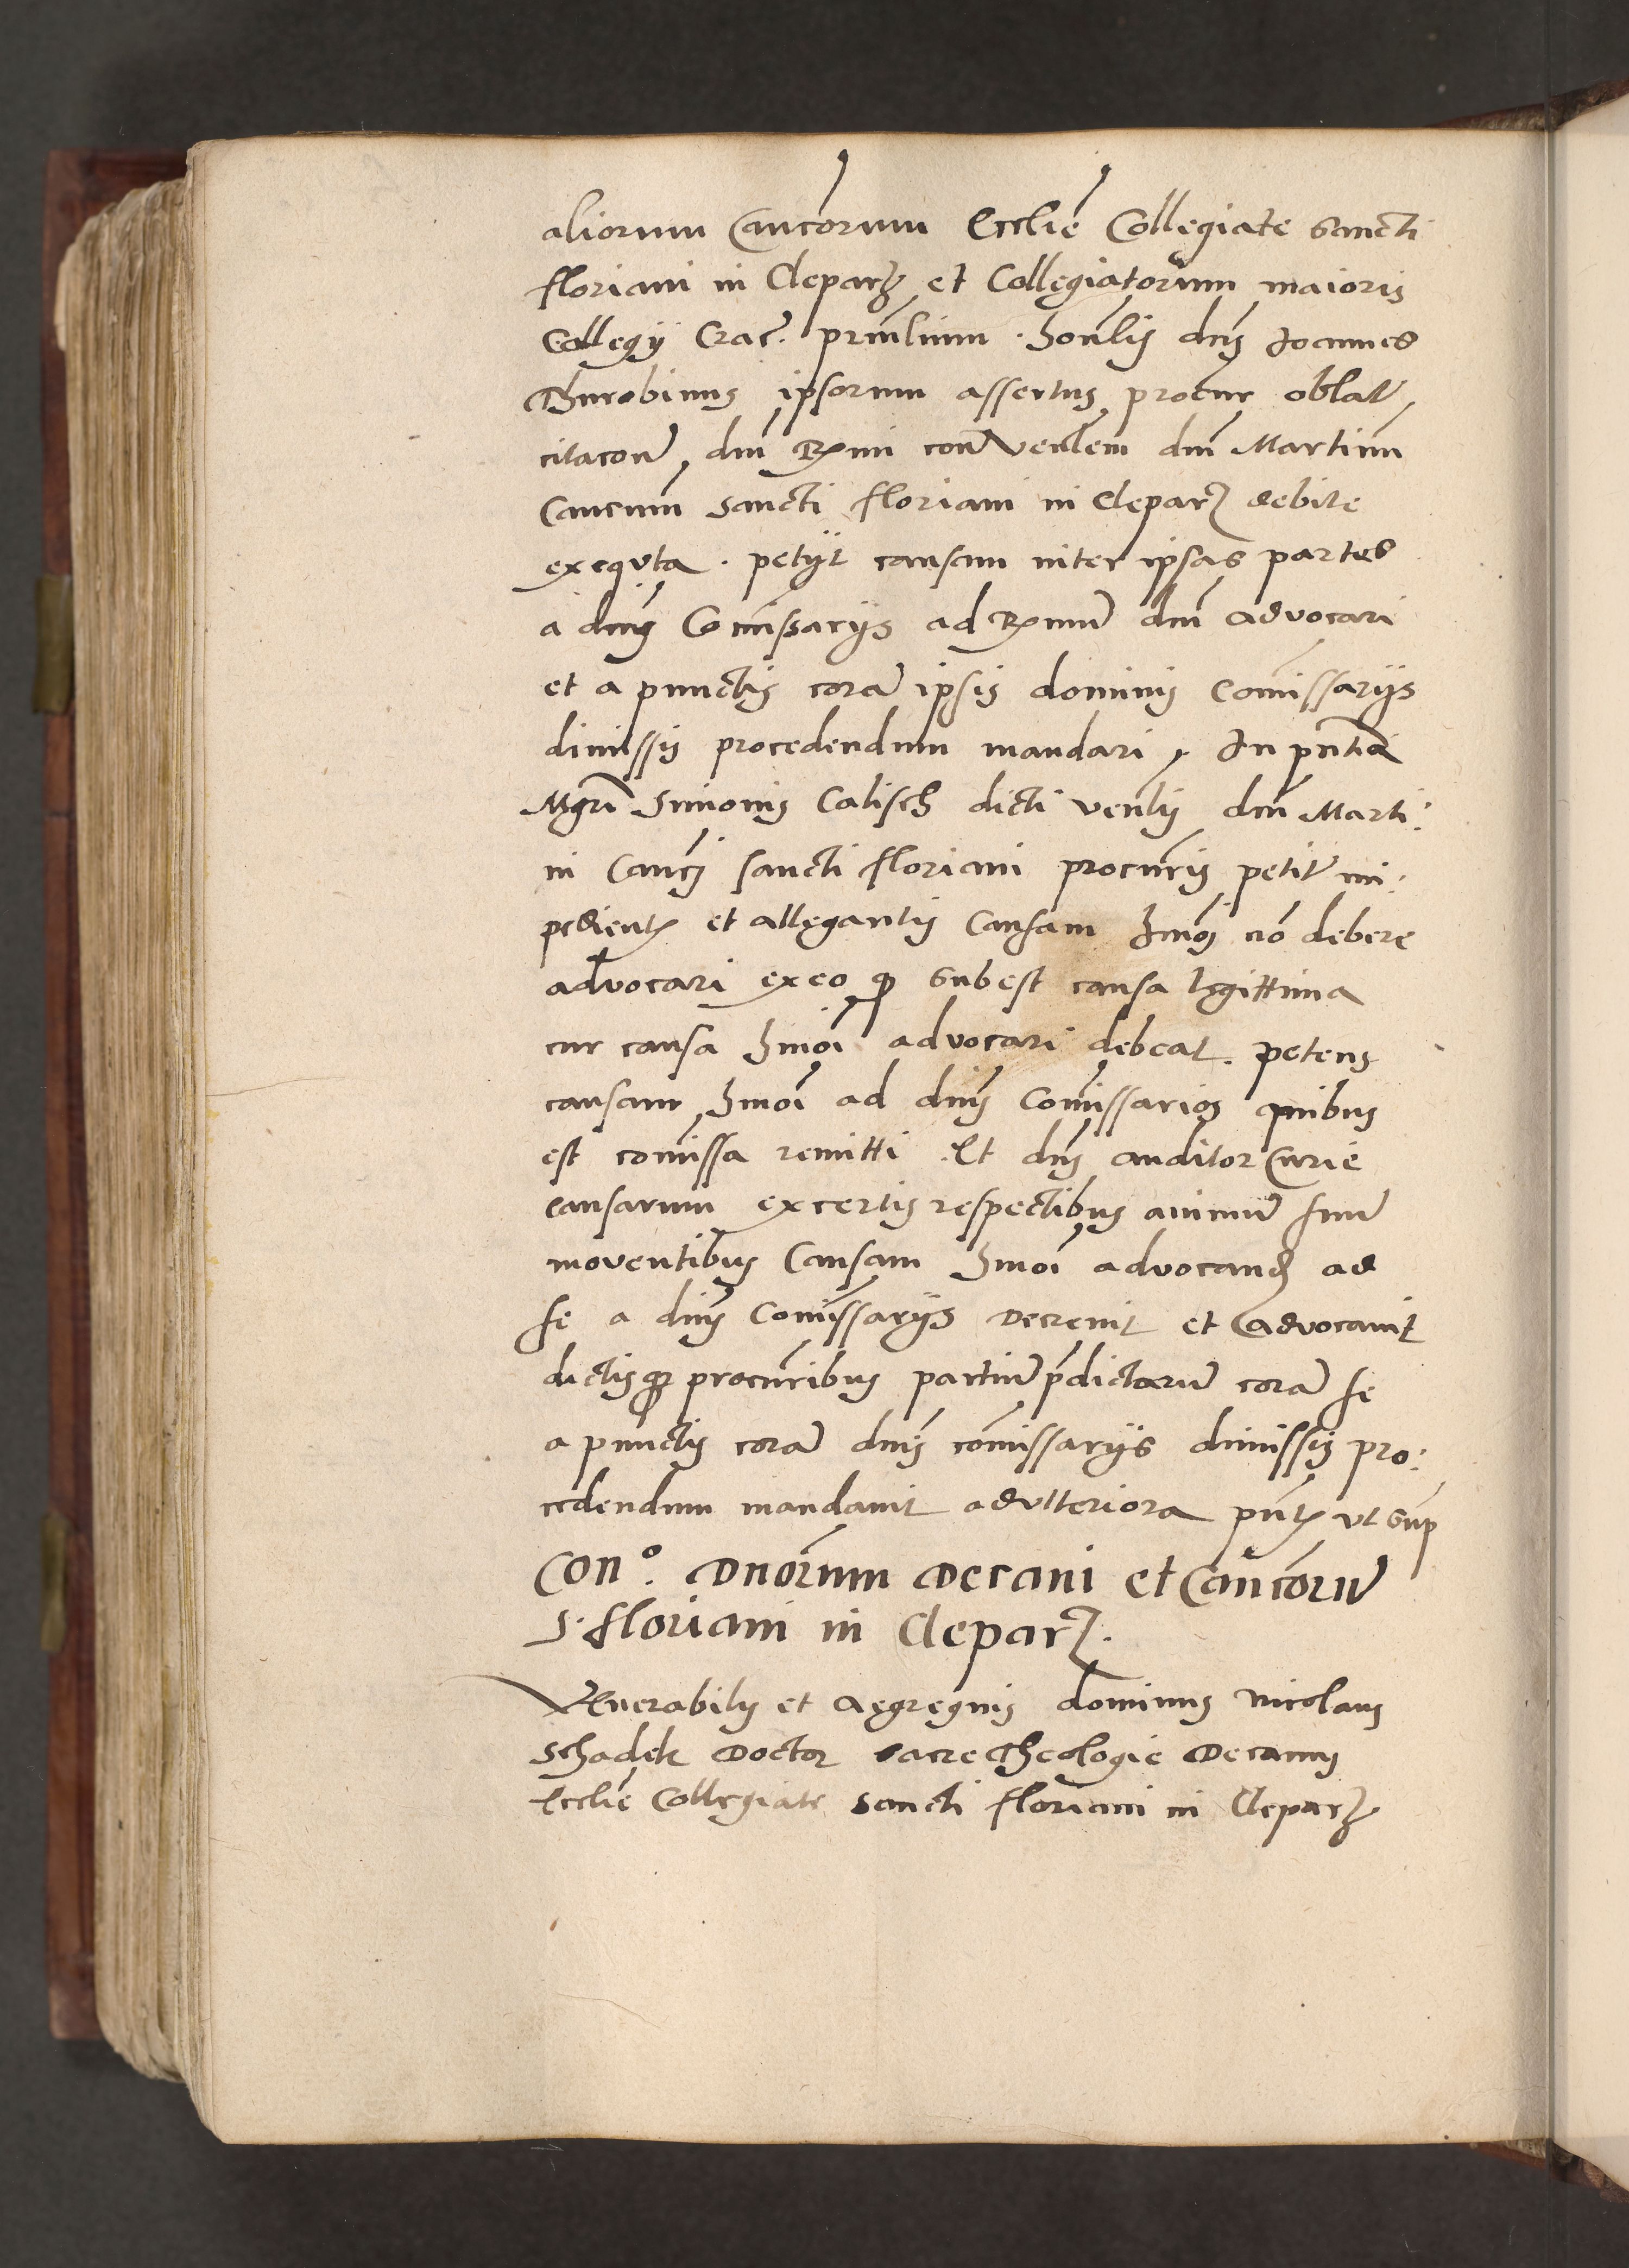 aliorum Cancorum Ecclie Collegiate Sancti
floriani in Clepar et Collegiatorum maioris
Collegij Crac. principalium. honlis dns Joannes
Thurobinus ipsorum assertus procur oblat
citacone dni Rmi contra venlem dnm Martinu
Cancum sancti floriani in Clepar debite
exequta. petijt causam inter ipsas partes
a dnis Comissarijs ad Rmum dnm advocari
et a punctis cora ipsis dominis Comissarijs
dimissis procedendum mandari, In pntia
Mgri Simonis Calisch dicti venlis dni Marti:
ni Canci sancti floriani procuris petit im:
pedient et allegantis Causam hmoi no debere
advocari ex eo q subest causa legittima
cur causa hmoi advocari debeat. petens
causam hmoi ad dnos Comissarios quibus
est comissa remitti. Et dns auditor Curie
causarum ex certis respectibus animu suu
moventibus Causam hmoi advocand ad
se a dnis Comissarijs Decrevit et advocavit
dictisq procuribus partiu pdictaru cora se
a punctis cora dnis comissarijs dimissis pro:
cedendum mandavit ad ulteriora pnt ut sup
Con°. Dnorum Decani et Cancoru
S. floriani in Clepar.
Venerabilis et aegregius dominus Nicolaus
Schadek Doctor sacre Theologie Decanus
Ecclie Collegiate sancti floriani in Clepar